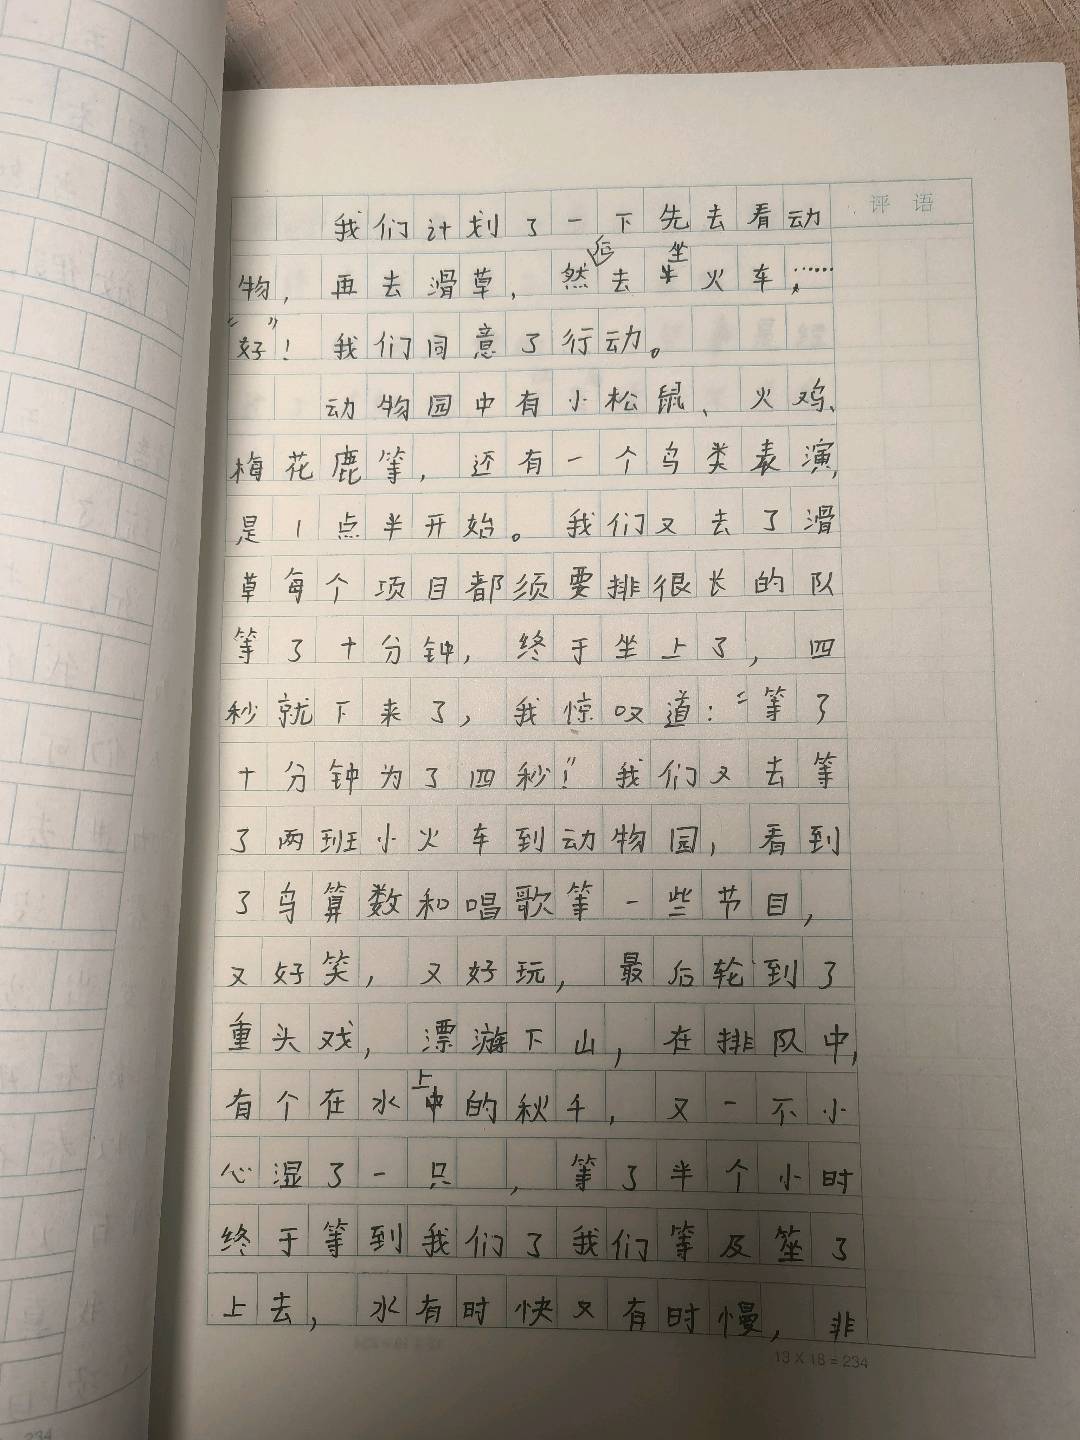 评语
我们计划了一下先去看动
物，再去滑草，然后去坐火车，……
“好”！我们同意了行动。
动物园中有小松鼠、火鸡、
梅花鹿等，还有一个鸟类表演，
是1点半开始。我们又去了滑
草每个项目都须要排很长的队
等了十分钟，终于坐上了，四
秒就下来了，我惊叹道：“等了
十分钟为了四秒！”我们又去等
了两班小火车到动物园，看到
了鸟算数和唱歌等一些节目，
又好笑，又好玩，最后轮到了
重头戏，漂游下山，在排队中，
有个在水上的秋千，又一不小
心湿了一只，等了半个小时
终于等到我们了我们等及了
上去，水有时快又有时慢，非
13×18=234
234